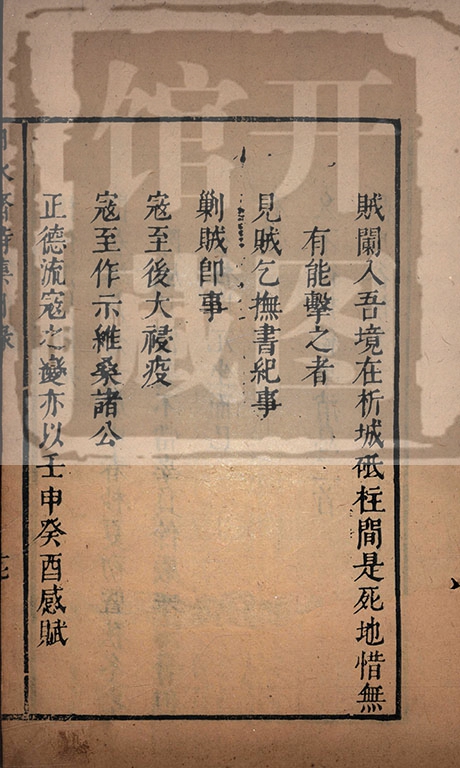 賊闌入吾境在析城砥柱間是死地惜無
有能擊之者
見賊乞撫書紀事
剿賊即事
寇至後大祲疫
寇至作示維桑諸公
正德流寇之變亦以壬申癸酉感賦
开图
馆藏